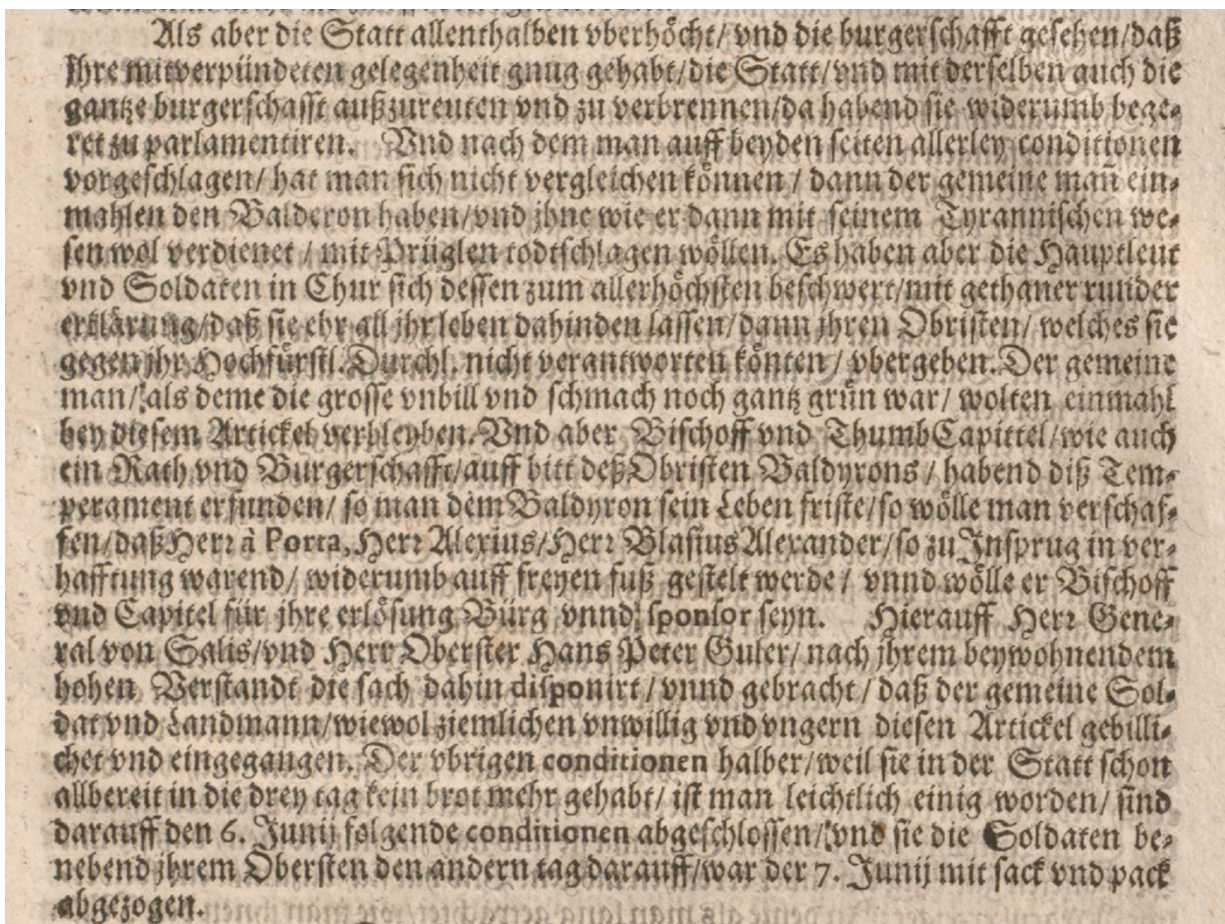 Als aber die Statt allenthalben vberhöcht/ vnd die burgerschafft gesehen/daß
jhre mitverpündeten gelegenheit gnug gehabt/die Statt/vnd mit derselben auch die
gantze burgerschafft außzureuten vnd zu verbrennen/da habend sie widerumb bege-
ret zu parlamentiren. Vnd nach dem man auff beyden seiten allerley conditionen
vorgeschlagen/ hat man sich nicht vergleichen können / dann der gemeine mañ ein-
mahlen den Balderon haben/vnd jhne wie er dann mit seinem Tyrannischen we-
sen wol verdienet / mit Prüglen todtschlagen wöllen. Es haben aber die Hauptleut
vnd Soldaten in Chur sich dessen zum allerhöchsten beschwert/mit gethaner runder
erklärung/daß sie ehr all jhr leben dahinden lassen/dann jhren Obristen/ welches sie
gegen jhr Hochfürstl. Durchl. nicht verantworten könten / vbergeben. Der gemeine
man/ als deme die grosse vnbill vnd schmach noch gantz grün war/ wolten einmahl
bey diesem Artickel verbleyben. Vnd aber Bischoff vnd ThumbCapittel/wie auch
ein Rath vnd Burgerschafft/auff bitt deß Obristen Baldyrons / habend diß Tem-
perament erfunden/ so man dem Baldyron sein Leben friste/so wölle man verschaf-
fen/daß Herr à Porta, Herr Alexius/Herr Blasius Alexander/so zu Insprug in ver-
hafftung warend/ widerumb auff freyen fuß gestelt werde / vnnd wölle er Bischoff
vnd Capitel für jhre erlösung Bürg vnnd sponsor seyn. Hierauff Herr Gene-
ral von Salis/vnd Herr Oberster Hans Peter Guler/ nach jhrem beywohnendem
hohen Verstandt die sach dahin disponirt / vnnd gebracht / daß der gemeine Sol-
dat vnd Landmann/wiewol ziemlichen vnwillig vnd vngern diesen Artickel gebilli-
chet vnd eingegangen. Der vbrigen conditionen halber/weil sie in der Statt schon
allbereit in die drey tag kein brot mehr gehabt/ ist man leichtlich einig worden/ sind
darauff den 6. Junij folgende conditionen abgeschlossen/ vnd sie die Soldaten be-
nebend jhrem Obersten den andern tag darauff/war der 7. Junij mit sack vnd pack
abgezogen.